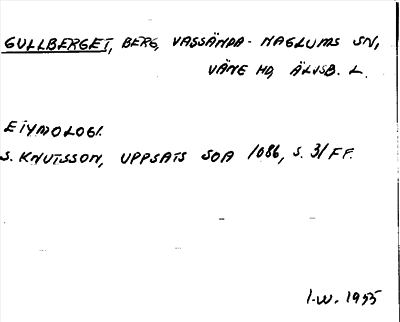 GULLBERGET, BERG, VASSÄNDA-NAGLUMS SN,
VÄNE HD, ÄLVSB. L.
ETYMOLOGI.
S. KNUTSSON, UPPSATS SOA 1086, S. 31 FF.
I.W. 1955